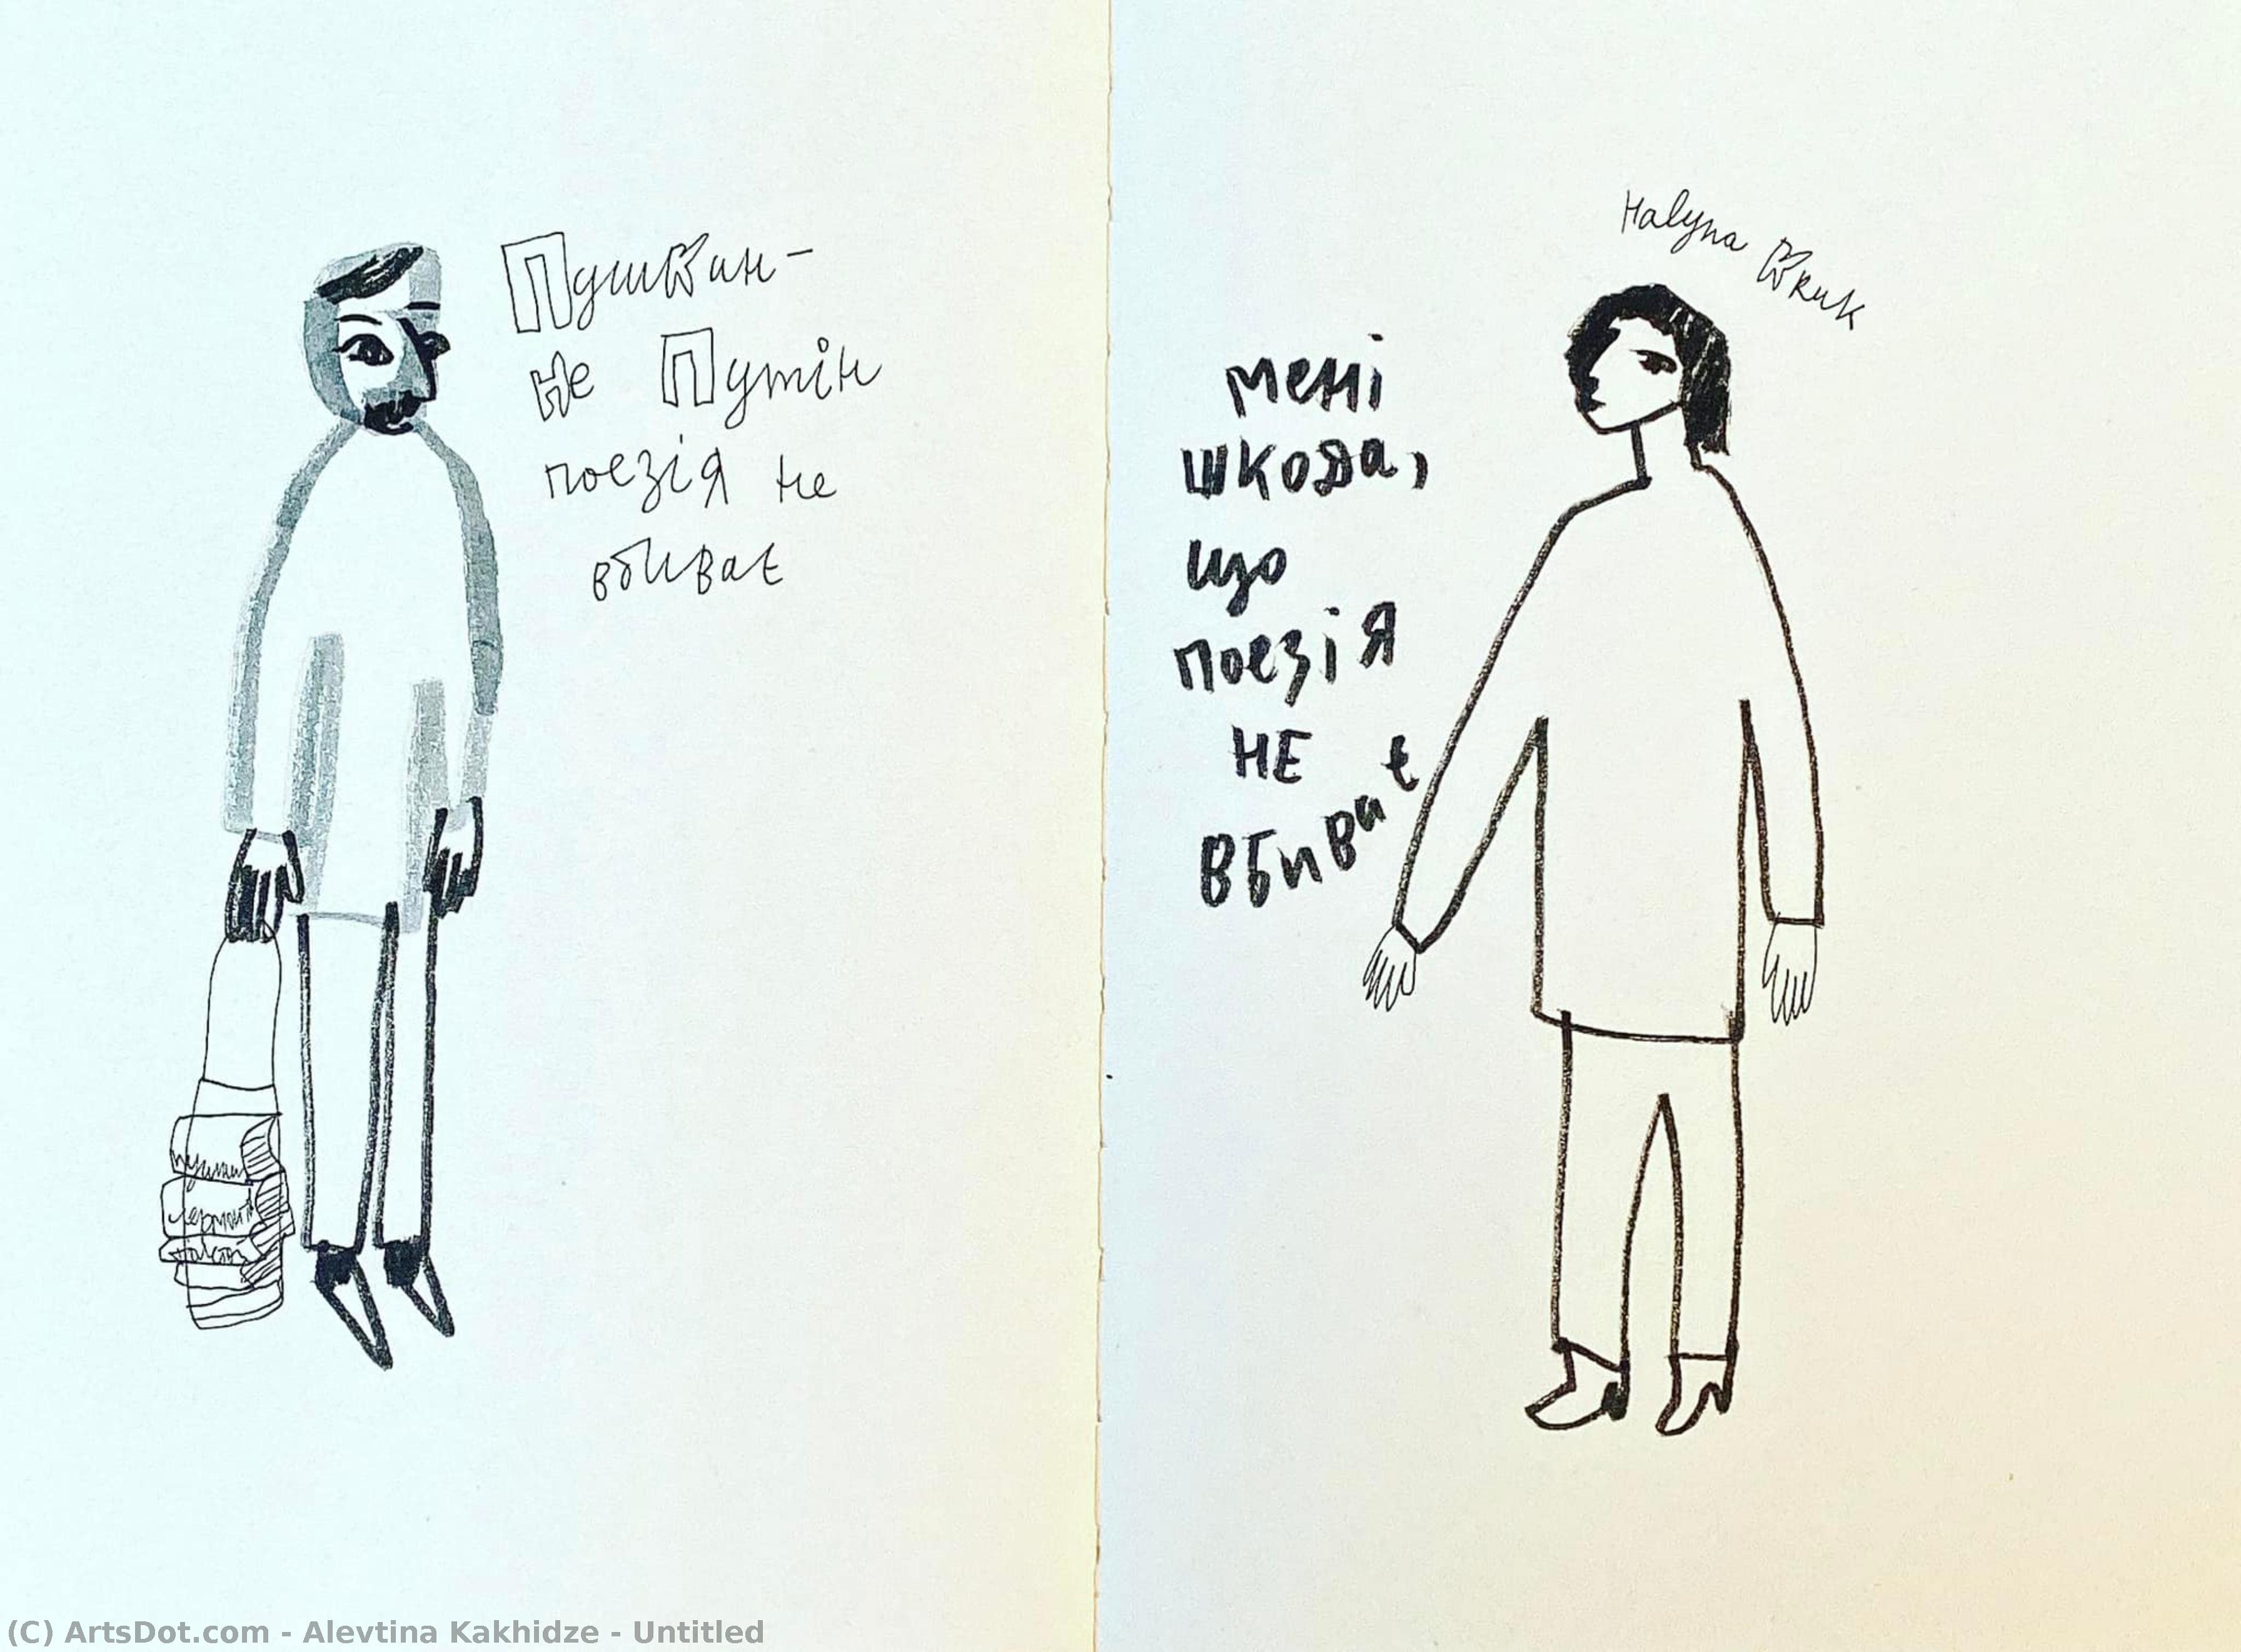 Пушкин -
не Путін
поезія не
вбиває
Halyna Kruk
мені
шкода,
що
поезія
НЕ
вбиває
(C) ArtsDot.com - Alevtina Kakhidze - Untitled